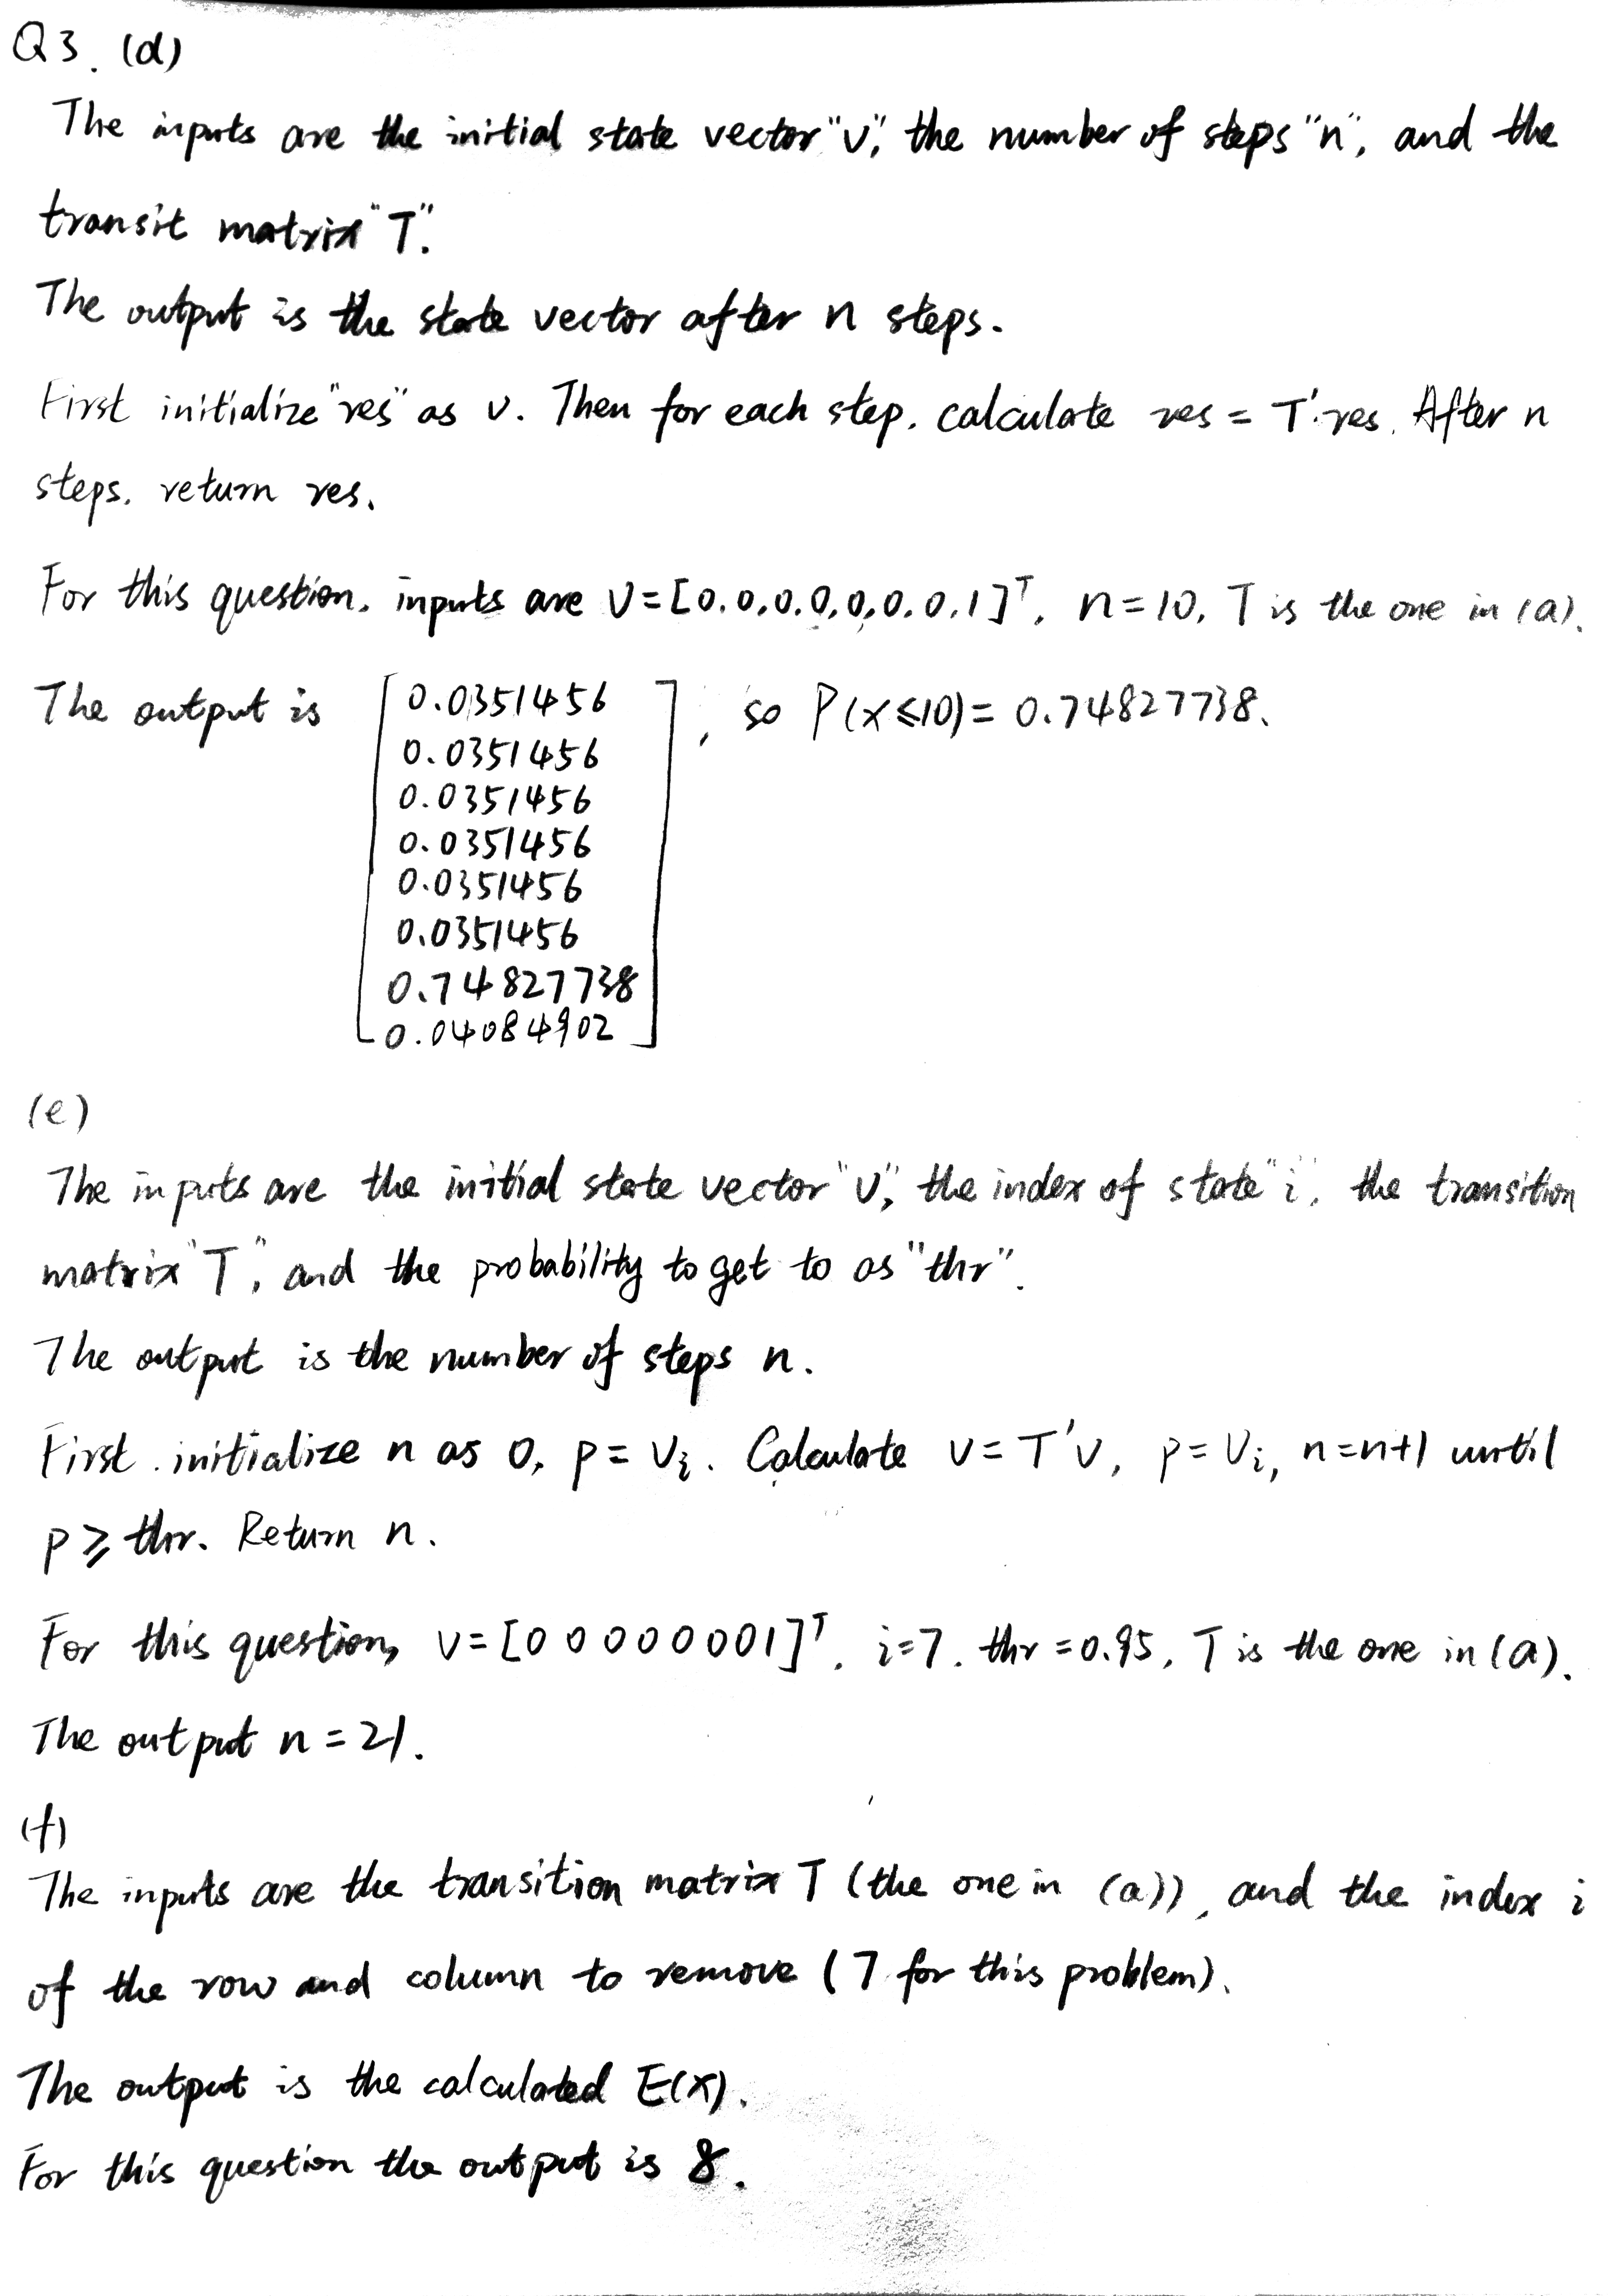 Q3. (d)
The inputs are the initial state vector "v", the number of steps "n", and the
transit matrix "T".
The output is the state vector after n steps.
First initialize "res" as v. Then for each step, calculate res = T'·res. After n
steps, return res.
For this question, inputs are v=[0,0,0,0,0,0,0,1]ᵀ, n=10, T is the one in (a).
The output is [0.0351456 , so P(X≤10)= 0.74827738.
0.0351456
0.0351456
0.0351456
0.0351456
0.0351456
0.74827738
0.04084902]
(e)
The inputs are the initial state vector "v", the index of state "i", the transition
matrix "T", and the probability to get to as "thr".
The output is the number of steps n.
First initialize n as 0, p = vᵢ. Calculate v = T'v, p = vᵢ, n=n+1 until
p ≥ thr. Return n.
For this question, v=[0 0 0 0 0 0 0 1]ᵀ, i=7, thr=0.95, T is the one in (a).
The output n = 21.
(f)
The inputs are the transition matrix T (the one in (a)), and the index i
of the row and column to remove (7 for this problem).
The output is the calculated E(X).
For this question the output is 8.